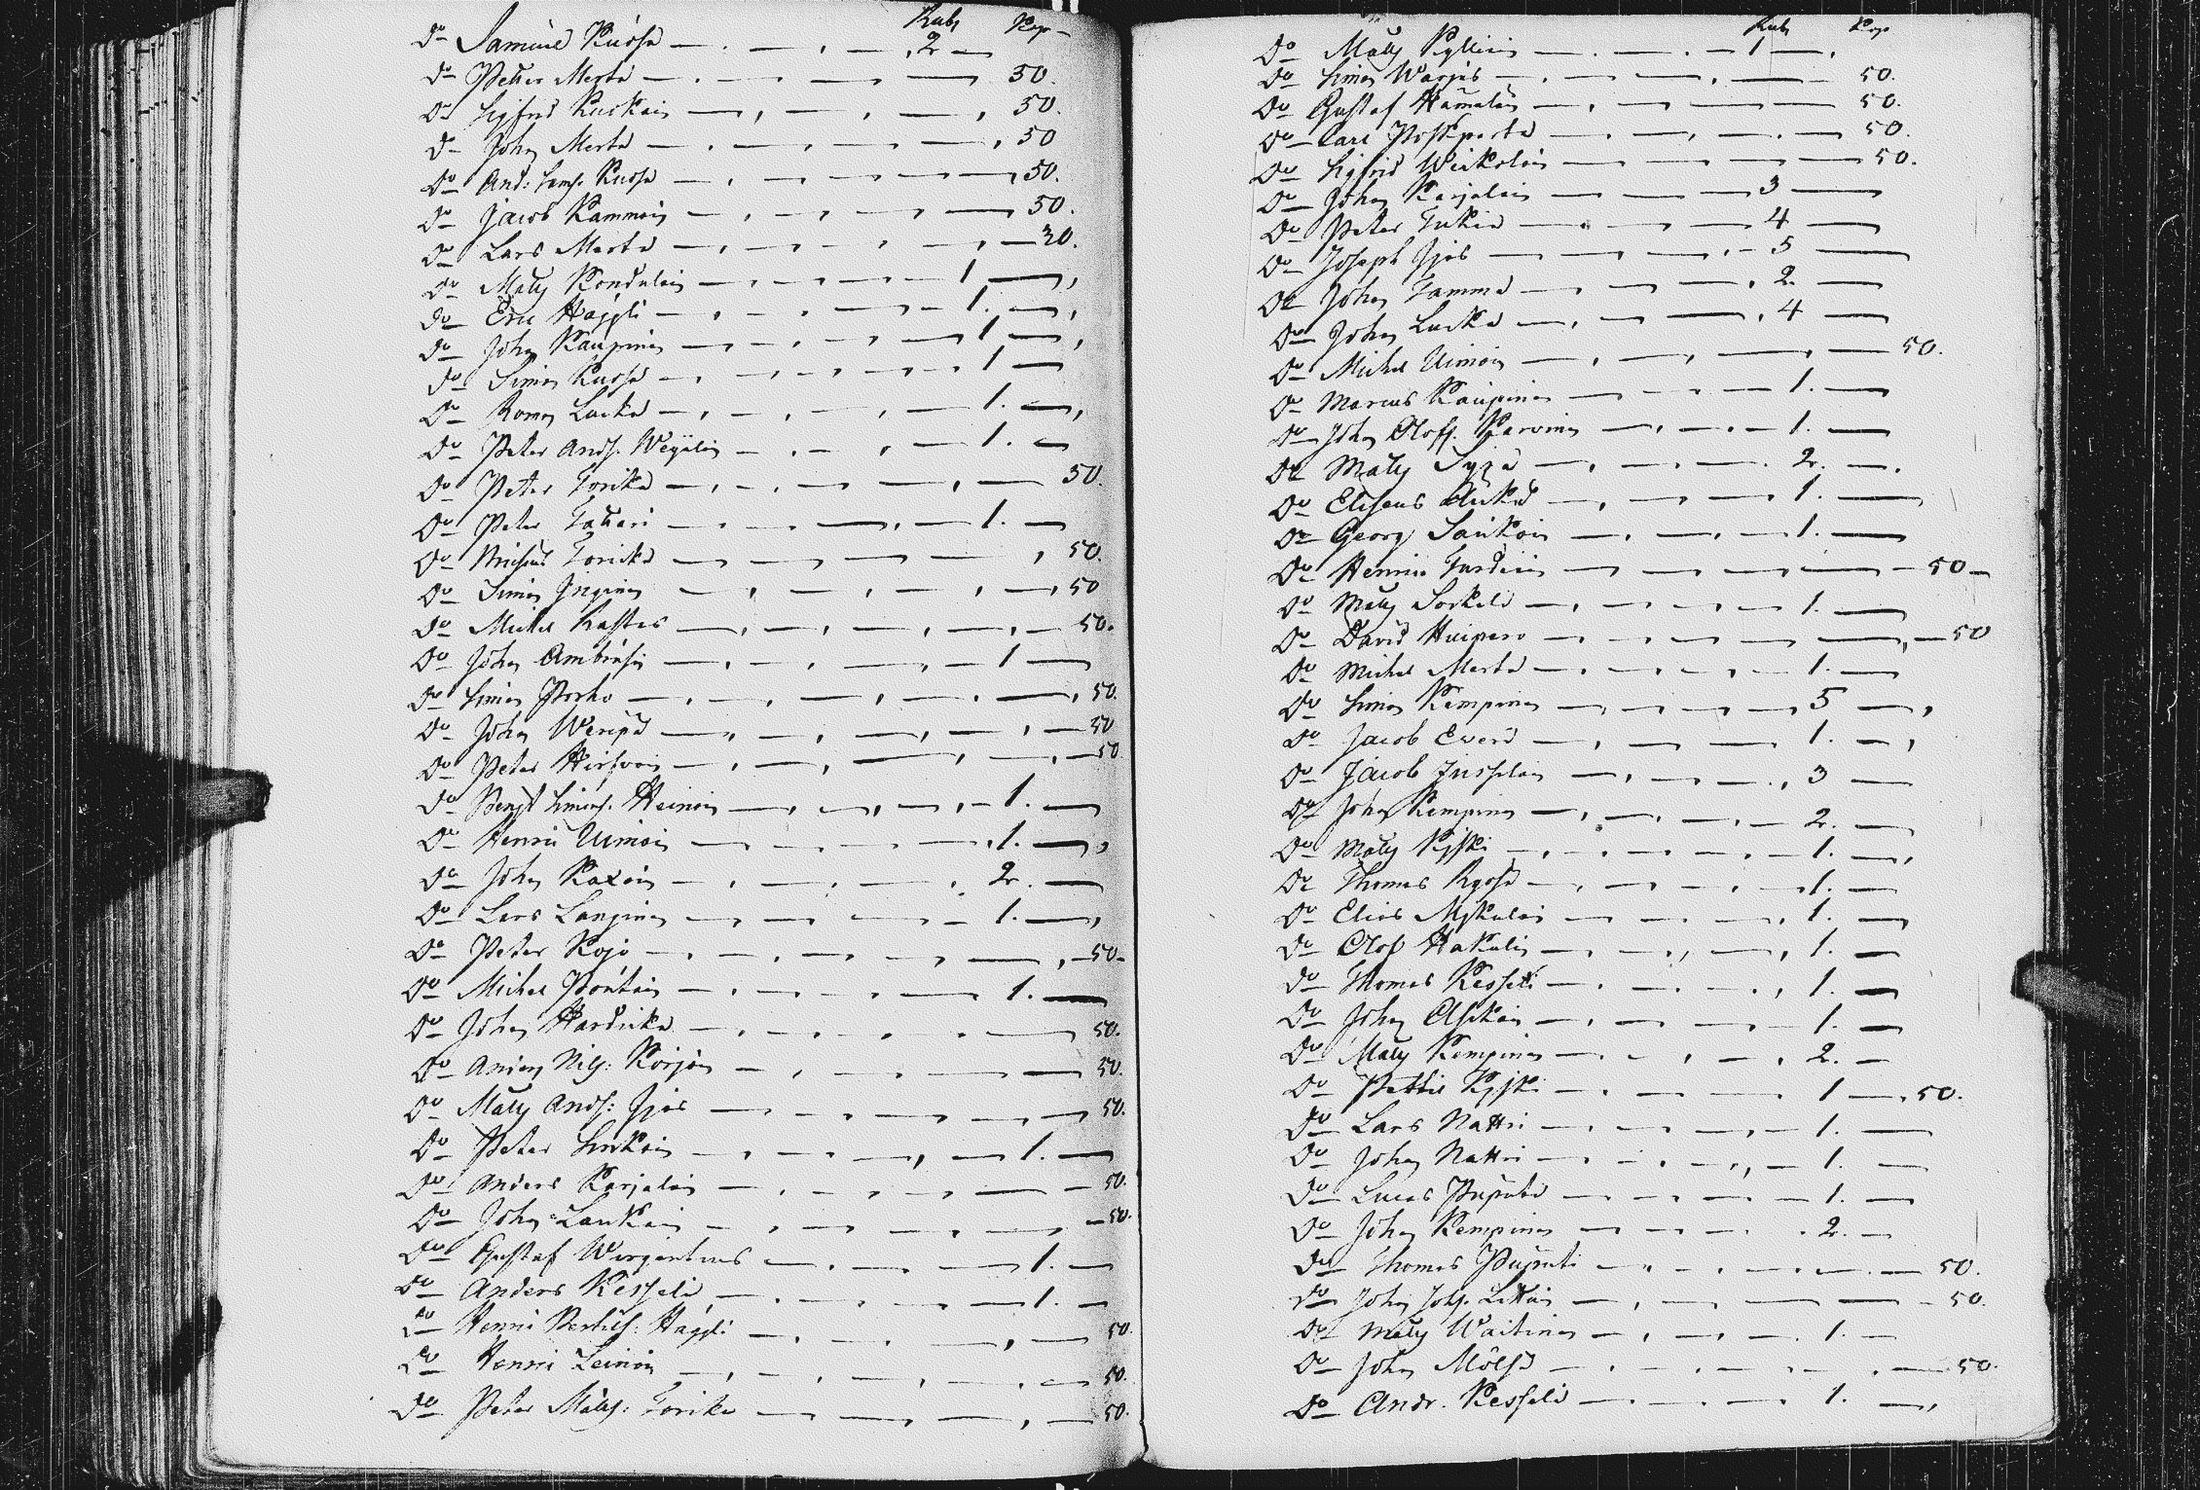 Rub Kop
Do Samuel Kuosa 2
Do Petter Merta 50.
Do Sigfrid Kuokain 50.
Do Joh. Merta 50
Do And: Sams. Kuosa 50.
Do Jacob Kammoin 50.
Do Lars Merta 20.
Do Mats Kondulain 1
Do Eric Häppli 1.
Do Joh. Kaupinen 1
Do Simon Kuosa 1
Do Roman Lucka 1.
Do Peter Ands. Weijalin 1.
Do Peter Torikka 50.
Do Peter Tattari 1.
Do Michael Torikka 50.
Do Simon Inginen 50
Do Michel Rastas 50.
Do Johan Ambrusin 1
Do Simon Porko 50.
Do Johan Weripä 50
Do Peter Hirfvoin 50
Do Bengt Simons. Heinoin 1.
Do Henric Uimoin 1.
Do Johan Kaxoin 2.
Do Lars Langinen 1.
Do Peter Kojo 50
Do Michel Pöntäin 1.
Do Johan Hardicka 50.
Do Anders Nils: Korjoin 50.
Do Mats Ands: Ijäs 50.
Do Peter Sinkoin 1.
Do Anders Karjalain 50.
Do Johan Laukain 50.
Do Gustaf Wirgentinus 1.
Do Anders Kesseli 1.
Do Henric Bertils: Häppli 50.
Do Henric Leinoin 50.
Do Peter Mats: Torikka 50.
Rub Kop
Do Mats Kyllinin 1
Do Simon Warjus 50.
Do Gustaf Hämäläin 50.
Do Carl Poskiparta 50.
Do Sigfrid Weikolain 50.
Do Johan Karjalain 3
Do Peter Tukia 4
Do Joseph Ijäs 5
Do Johan Tamma 2.
Do Johan Lucka 4
Do Michel Uimoin 50.
Do Marcus Kaupinen 1.
Do Johan Olofs. Karvinen 1.
Do Mats Syrjä 2.
Do Eliseus Aucka 1.
Do Georg Saukoin 1.
Do Henric Turdiain 50
Do Mats Sorkeli 1.
Do David Huipero 50
Do Michel Merta 1.
Do Simon Kempinen 5
Do Jacob Everi 1.
Do Jacob Jusselain 3
Do Johan Kempinen 2.
Do Mats Kiiski 1.
Do Thomas Ryösä 1.
Do Elias Mykuläin 1.
Do Olof Hakulin 1.
Do Thomas Kesseli 1.
Do Johan Asikain 1.
Do Mats Kempinen 2.
Do Pehr Kiiski 1 50.
Do Lars Nattri 1.
Do Johan Nattri 1.
Do Lucas Puputi 1.
Do Johan Kempinen 2.
Do Thomas Puputi 50.
Do Johan Johs. Littuin 50.
Do Mats Waitinen 1.
Do Johan Mölsä 50.
Do Andr. Kesseli 1.